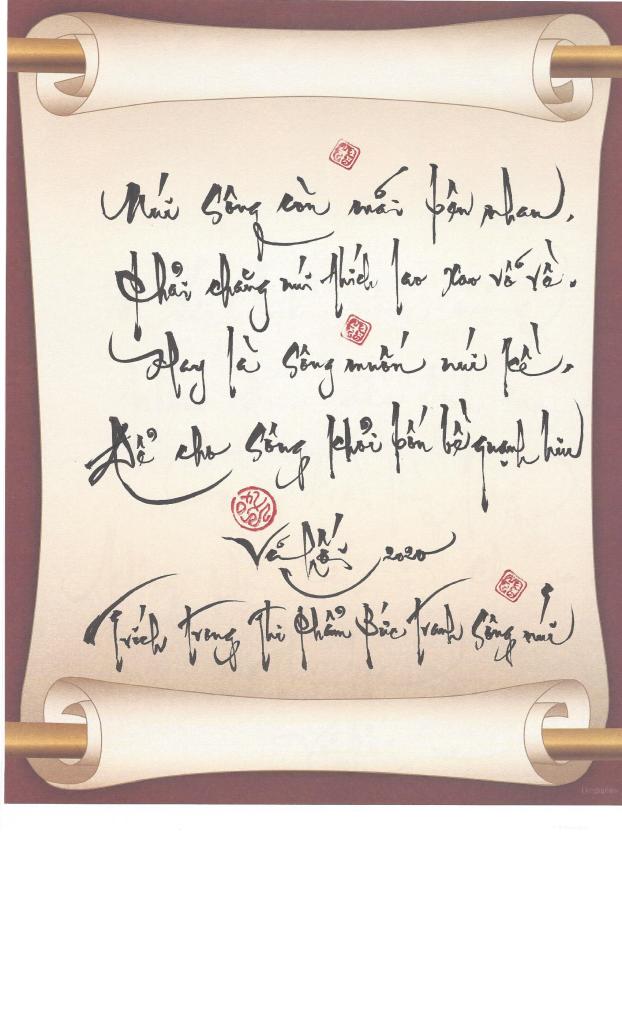 Núi sông còn mãi bên nhau,
Phải chăng núi thích lao xao vỗ về.
Hay là sông muốn núi kề,
Để cho sông khỏi bốn bề quạnh hiu
2020
Trích trong Thi Phẩm Bức Tranh Sông núi